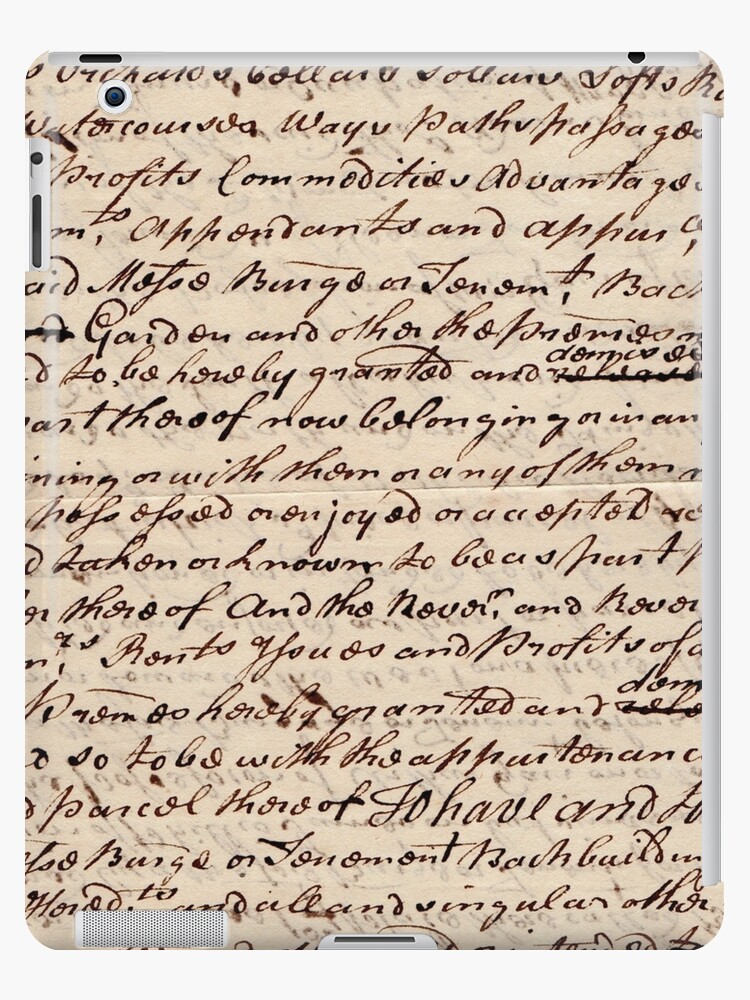 Orchards Cellars Sollars Lofts
Watercourses Ways Paths passages
Profits Commodities Advantages
m,ts Appendants and appur
aid Messe Burge or Tenem,t Back
Garden and other the Premes
d to be hereby granted and demised released
part thereof now belonging or in an
ining or with them or any of them
possessed or enjoyed or accepted re
d taken or known to be as part
er thereof And the Rever,n and Rever
n,rs Rents Issues and Profits of a
Premes hereby granted and dem rele
d so to be with the appurtenanc
d parcel thereof To have and to
esse Burge or Tenement Backbuildin
Hered,ts and all and singular other